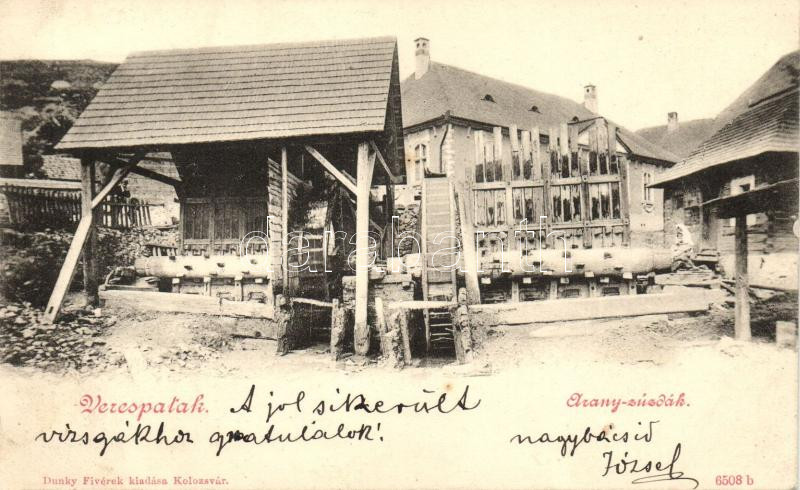 darabanth
Verespatak. Arany-zúzdák.
A jol sikerült
vizsgákhoz gratulálok!
nagybácsid
József
Dunky Fivérek kiadása Kolozsvár. 6508 b